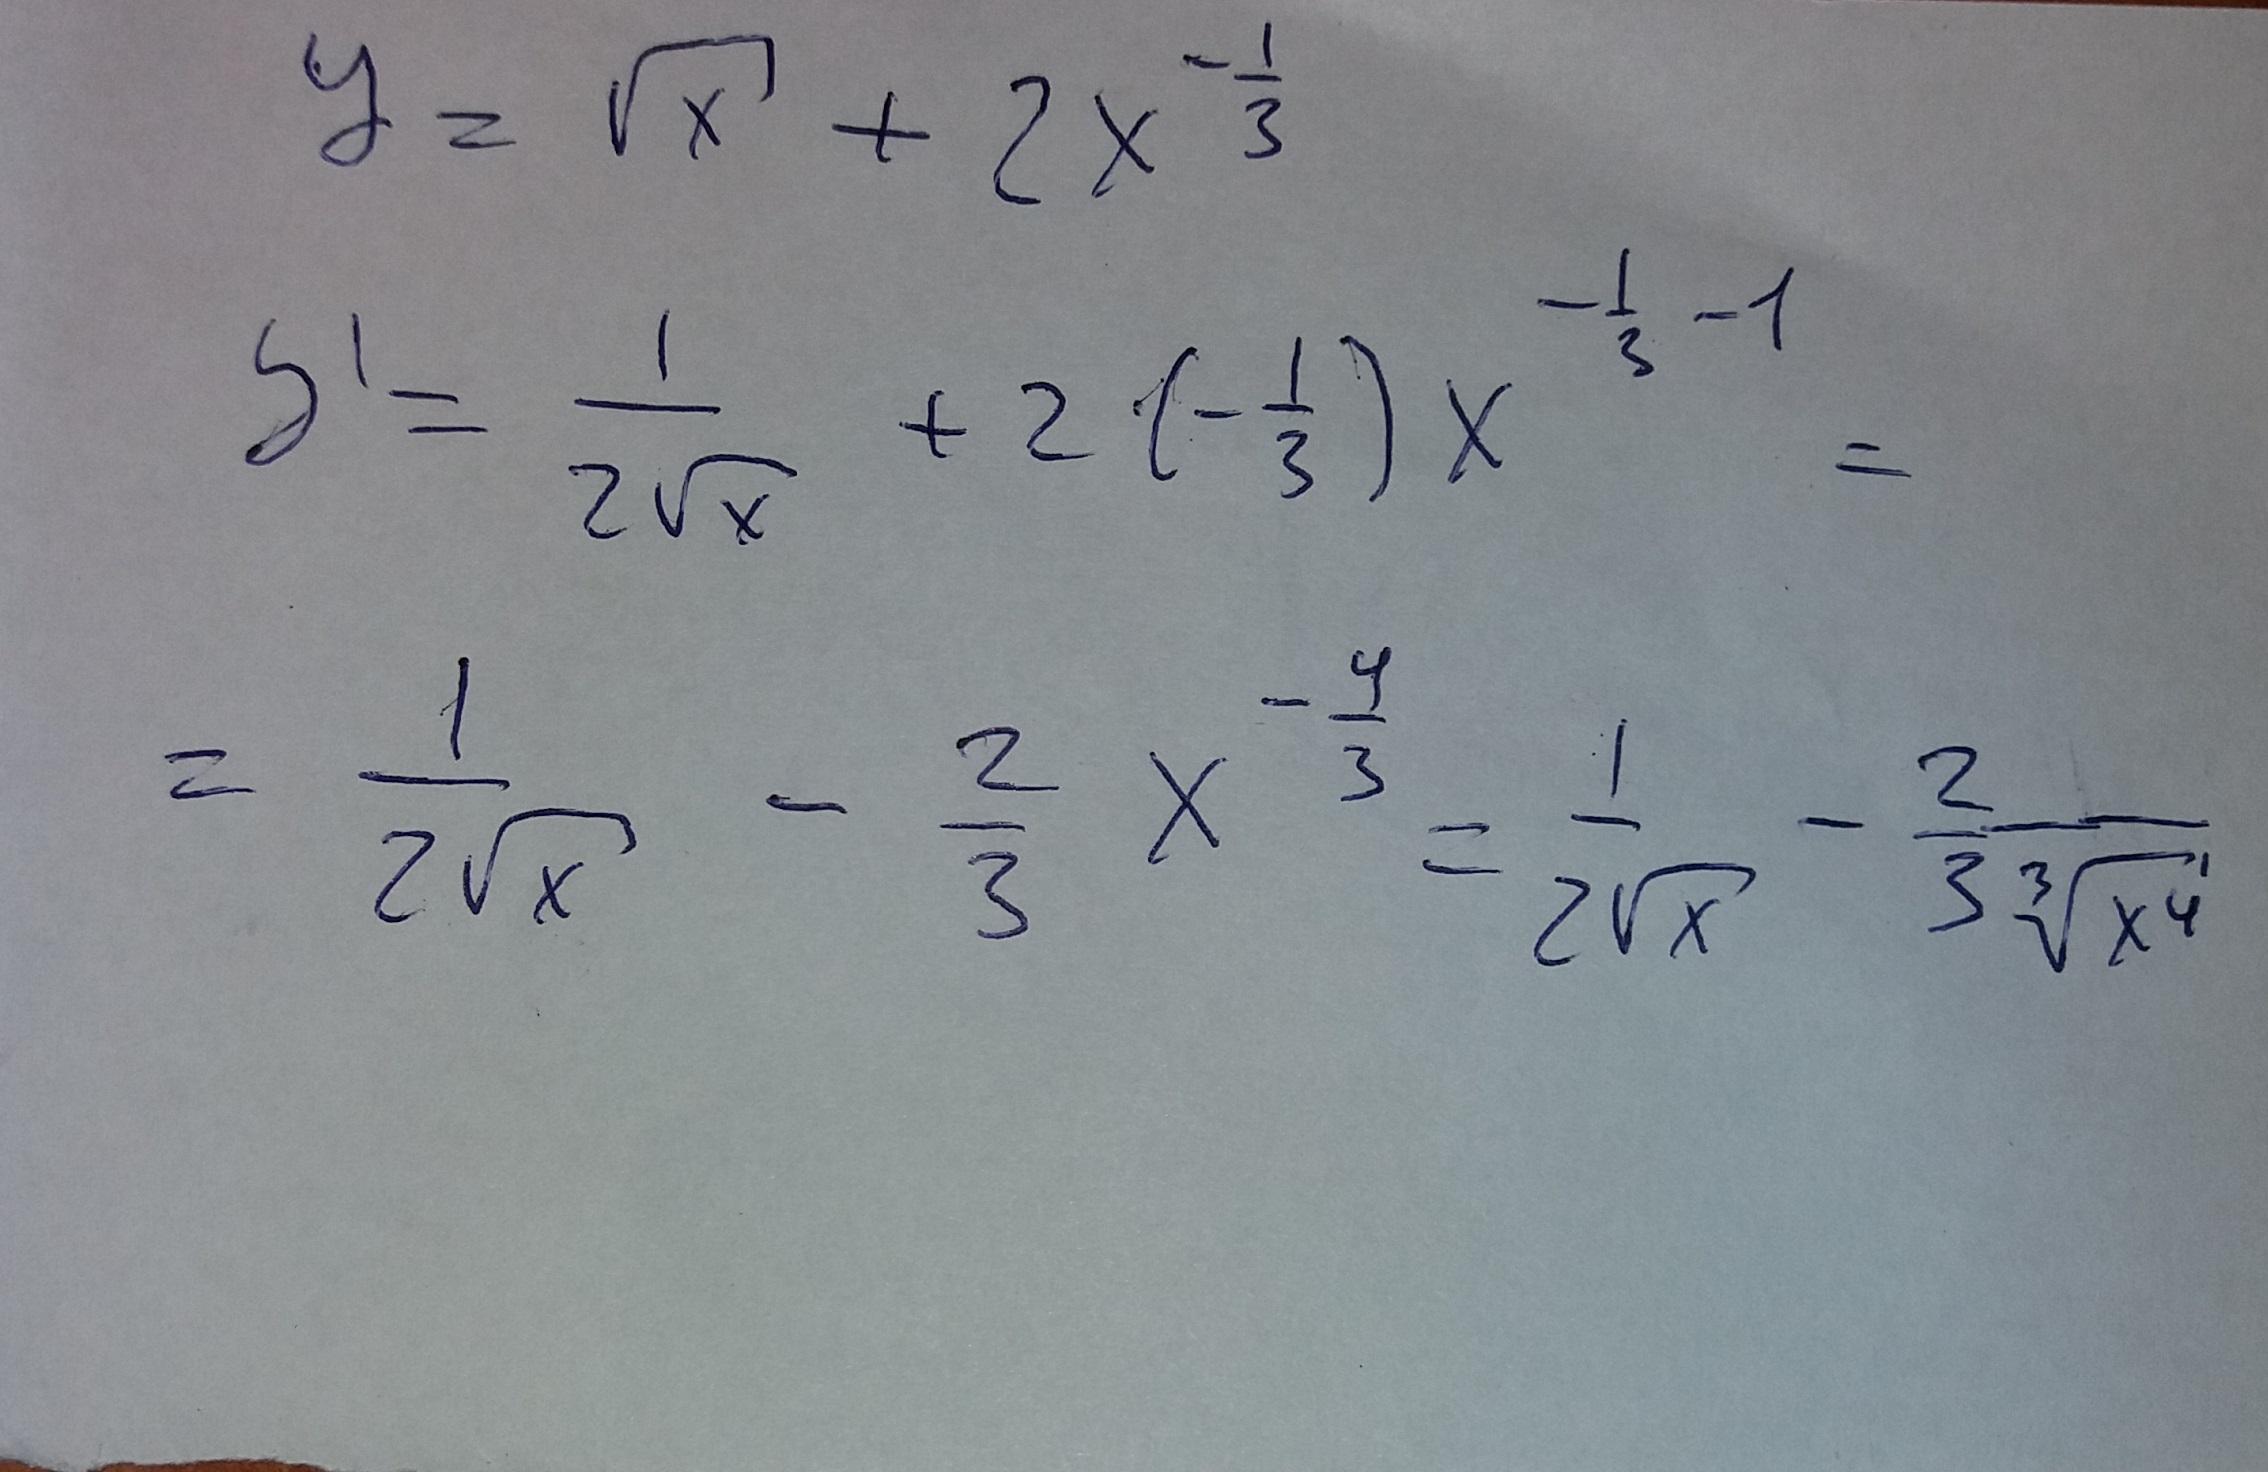 y = √x + 2x^(-1/3)
y' = 1/(2√x) + 2·(-1/3)x^(-1/3 - 1) =
= 1/(2√x) - 2/3 x^(-4/3) = 1/(2√x) - 2/(3∛(x^4))